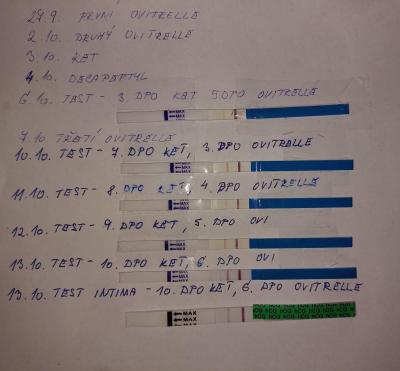 27.9. PRVNÍ OVITRELLE
2.10. DRUHÝ OVITRELLE
3.10. KET
4.10. DECAPEPTYL
6.10. TEST - 3. DPO KET 5 DPO OVITRELLE
MAX
7.10. TŘETÍ OVITRELLE
10.10. TEST - 7. DPO KET, 3. DPO OVITRELLE
MAX
11.10. TEST - 8. DPO KET, 4. DPO OVITRELLE
MAX
12.10. TEST - 9. DPO KET, 5. DPO OVI
MAX
13.10. TEST - 10. DPO KET, 6. DPO OVI
MAX
13.10. TEST INTIMA - 10. DPO KET, 6. DPO OVITRELLE
MAX
MAX
HCG HCG HCG HCG HCG